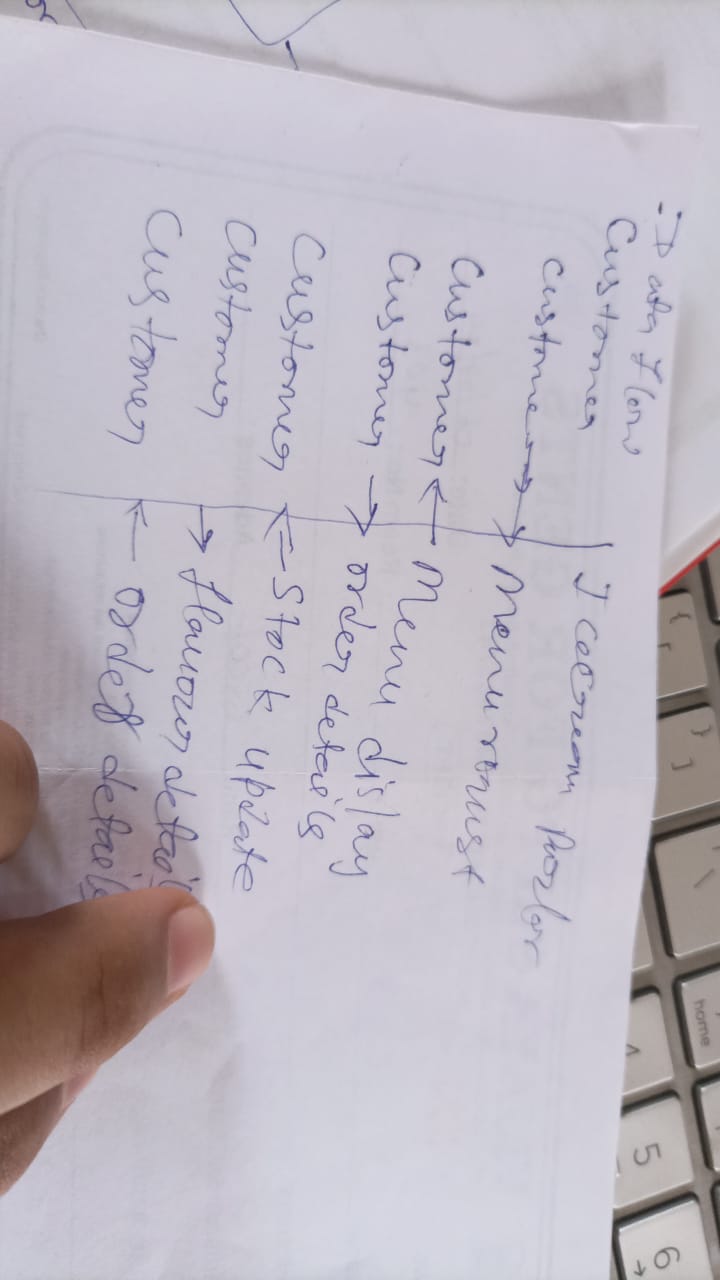 :- Data Flow
Customer | Icecream Parlor
Customer → Menu request
Customer ← Menu display
Customer → order details
Customer ← Stock update
Customer → flavour details
Customer ← order details
{
[
}
]
\
home
^
5
6
→